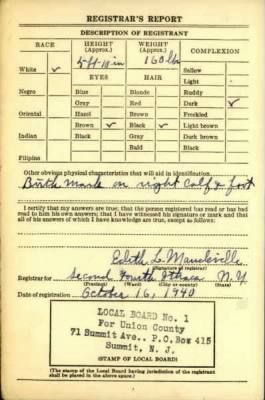 REGISTRAR'S REPORT
DESCRIPTION OF REGISTRANT
RACE HEIGHT (Approx.) WEIGHT (Approx.) COMPLEXION
5 ft 10 in 160 lbs
White ✓ Sallow
EYES HAIR Light
Negro Blue Blonde Ruddy
Gray Red Dark ✓
Oriental Hazel Brown Freckled
Brown ✓ Black ✓ Light brown
Indian Black Gray Dark brown
Bald Black
Filipino
Other obvious physical characteristics that will aid in identification
Birth mark on right calf & foot
I certify that my answers are true; that the person registered has read or has had
read to him his own answers; that I have witnessed his signature or mark and that
all of his answers of which I have knowledge are true, except as follows:
Edith L.
(Signature of registrar)
Registrar for Second Fourth Ithaca N.Y.
(Precinct) (Ward) (City or county) (State)
Date of registration October 16, 1940
LOCAL BOARD No. 1
For Union County
71 Summit Ave.. P.O. Box 415
Summit, N. J.
(STAMP OF LOCAL BOARD)
(The stamp of the Local Board having jurisdiction of the registrant
shall be placed in the above space.)